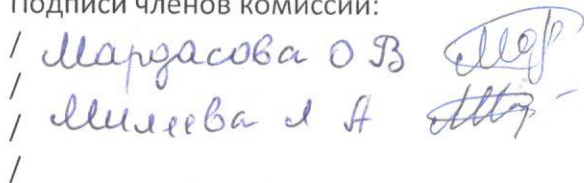 Подписи членов комиссии:
/ Мардасова О В
/
/ Милеева Л А
/